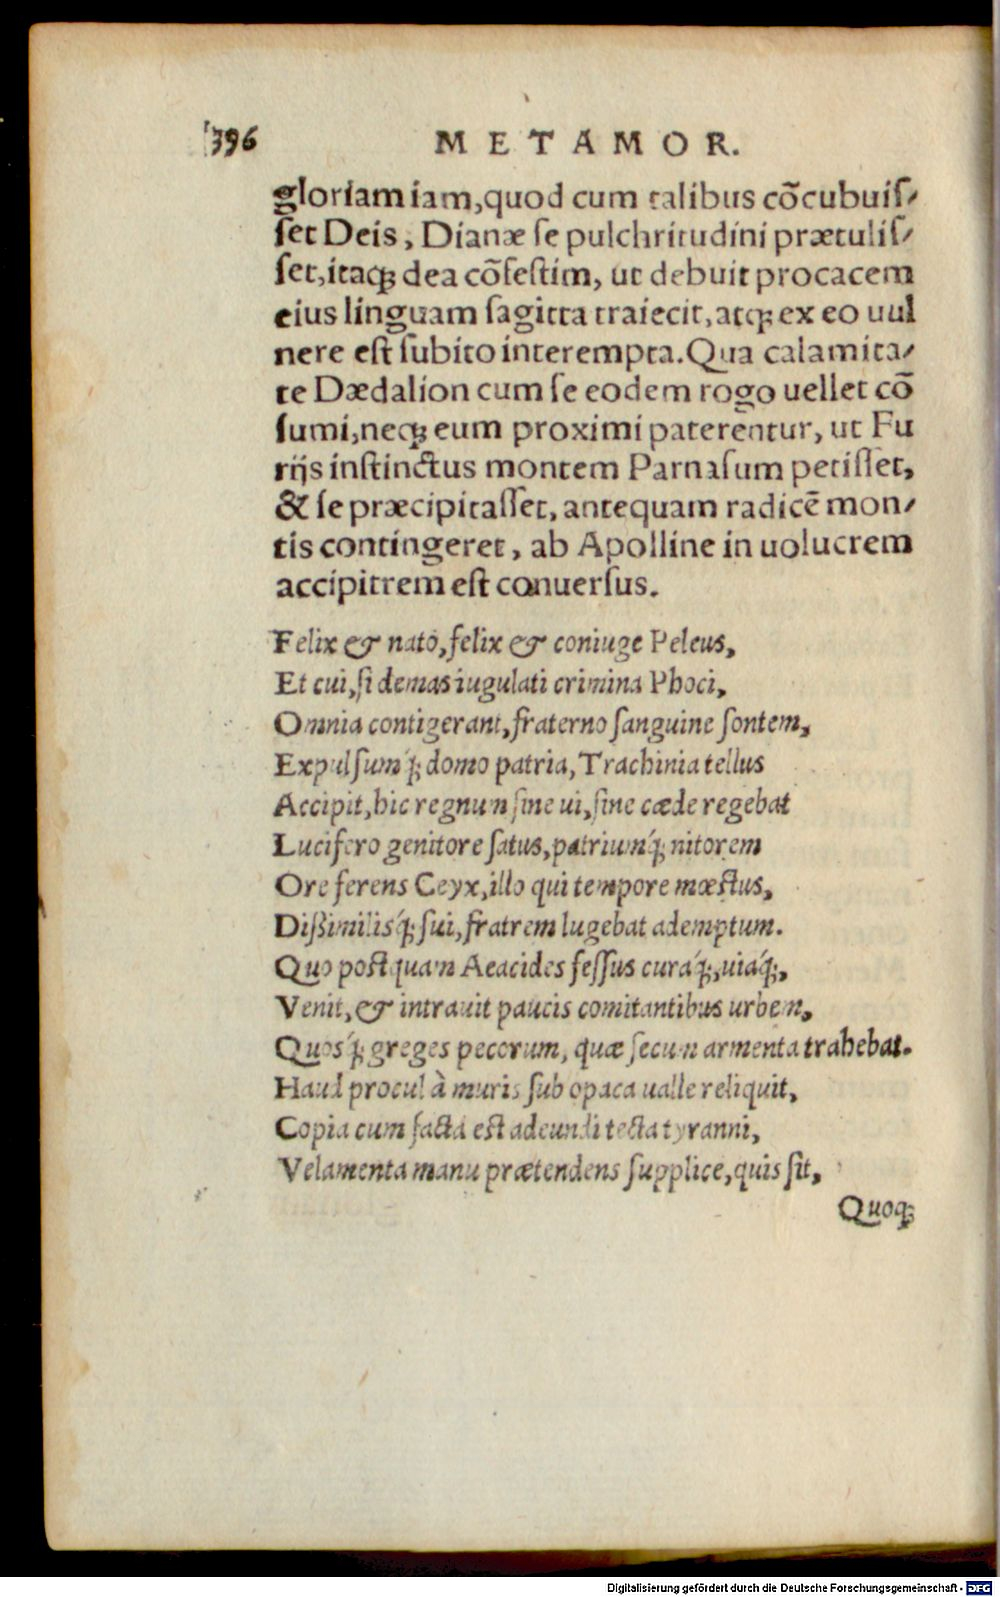 396 METAMOR.
gloriam iam,quod cum talibus cõcubuiſ⸗
ſet Deis, Dianæ ſe pulchritudini prætuliſ⸗
ſet,itaq; dea cõfeſtim, ut debuit procacem
eius linguam ſagitta traiecit,atq; ex eo uul
nere eſt ſubito interempta.Qua calamita⸗
te Dædalion cum ſe eodem rogo uellet cõ
ſumi,neq; eum proximi paterentur, ut Fu
rijs inſtinctus montem Parnaſum petiſſet,
& ſe præcipitaſſet, antequam radicẽ mon⸗
tis contingeret, ab Apolline in uolucrem
accipitrem eſt conuerſus.
Felix & nato,felix & coniuge Peleus,
Et cui,ſi demas iugulati crimina Phoci,
Omnia contigerant,fraterno ſanguine ſontem,
Expulſumq́; domo patria,Trachinia tellus
Accipit,hic regnum ſine ui,ſine cæde regebat
Lucifero genitore ſatus,patriumq́; nitorem
Ore ferens Ceyx,illo qui tempore mœſtus,
Dißimilisq́; ſui,fratrem lugebat ademptum.
Quo poſtquam Aeacides feſſus curaq́;,uiaq́;,
Venit,& intrauit paucis comitantibus urbem,
Quosq́; greges pecorum, quæ ſecum armenta trahebat.
Haud procul à muris ſub opaca ualle reliquit,
Copia cum facta eſt adeundi tecta tyranni,
Velamenta manu prætendens ſupplice,quis ſit,
Quoq;
Digitalisierung gefördert durch die Deutsche Forschungsgemeinschaft - DFG